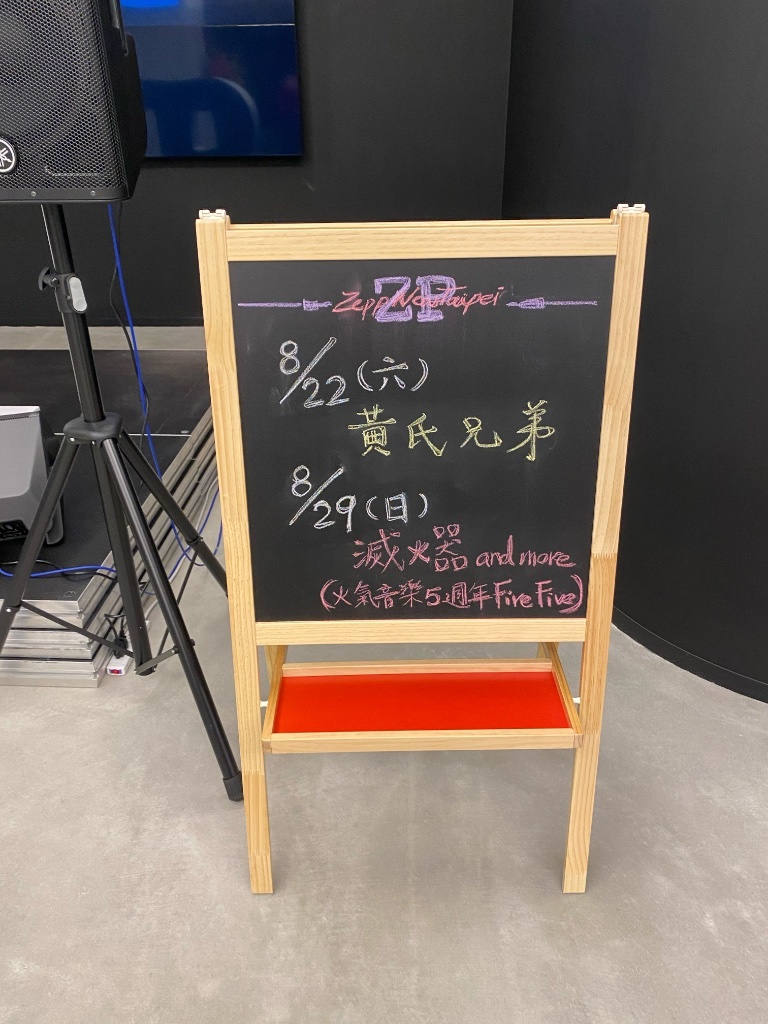 ZP
Zepp New Taipei
8/22(六)
黃氏兄弟
8/29(日)
滅火器 and more
(火氣音樂5週年Fire Five)